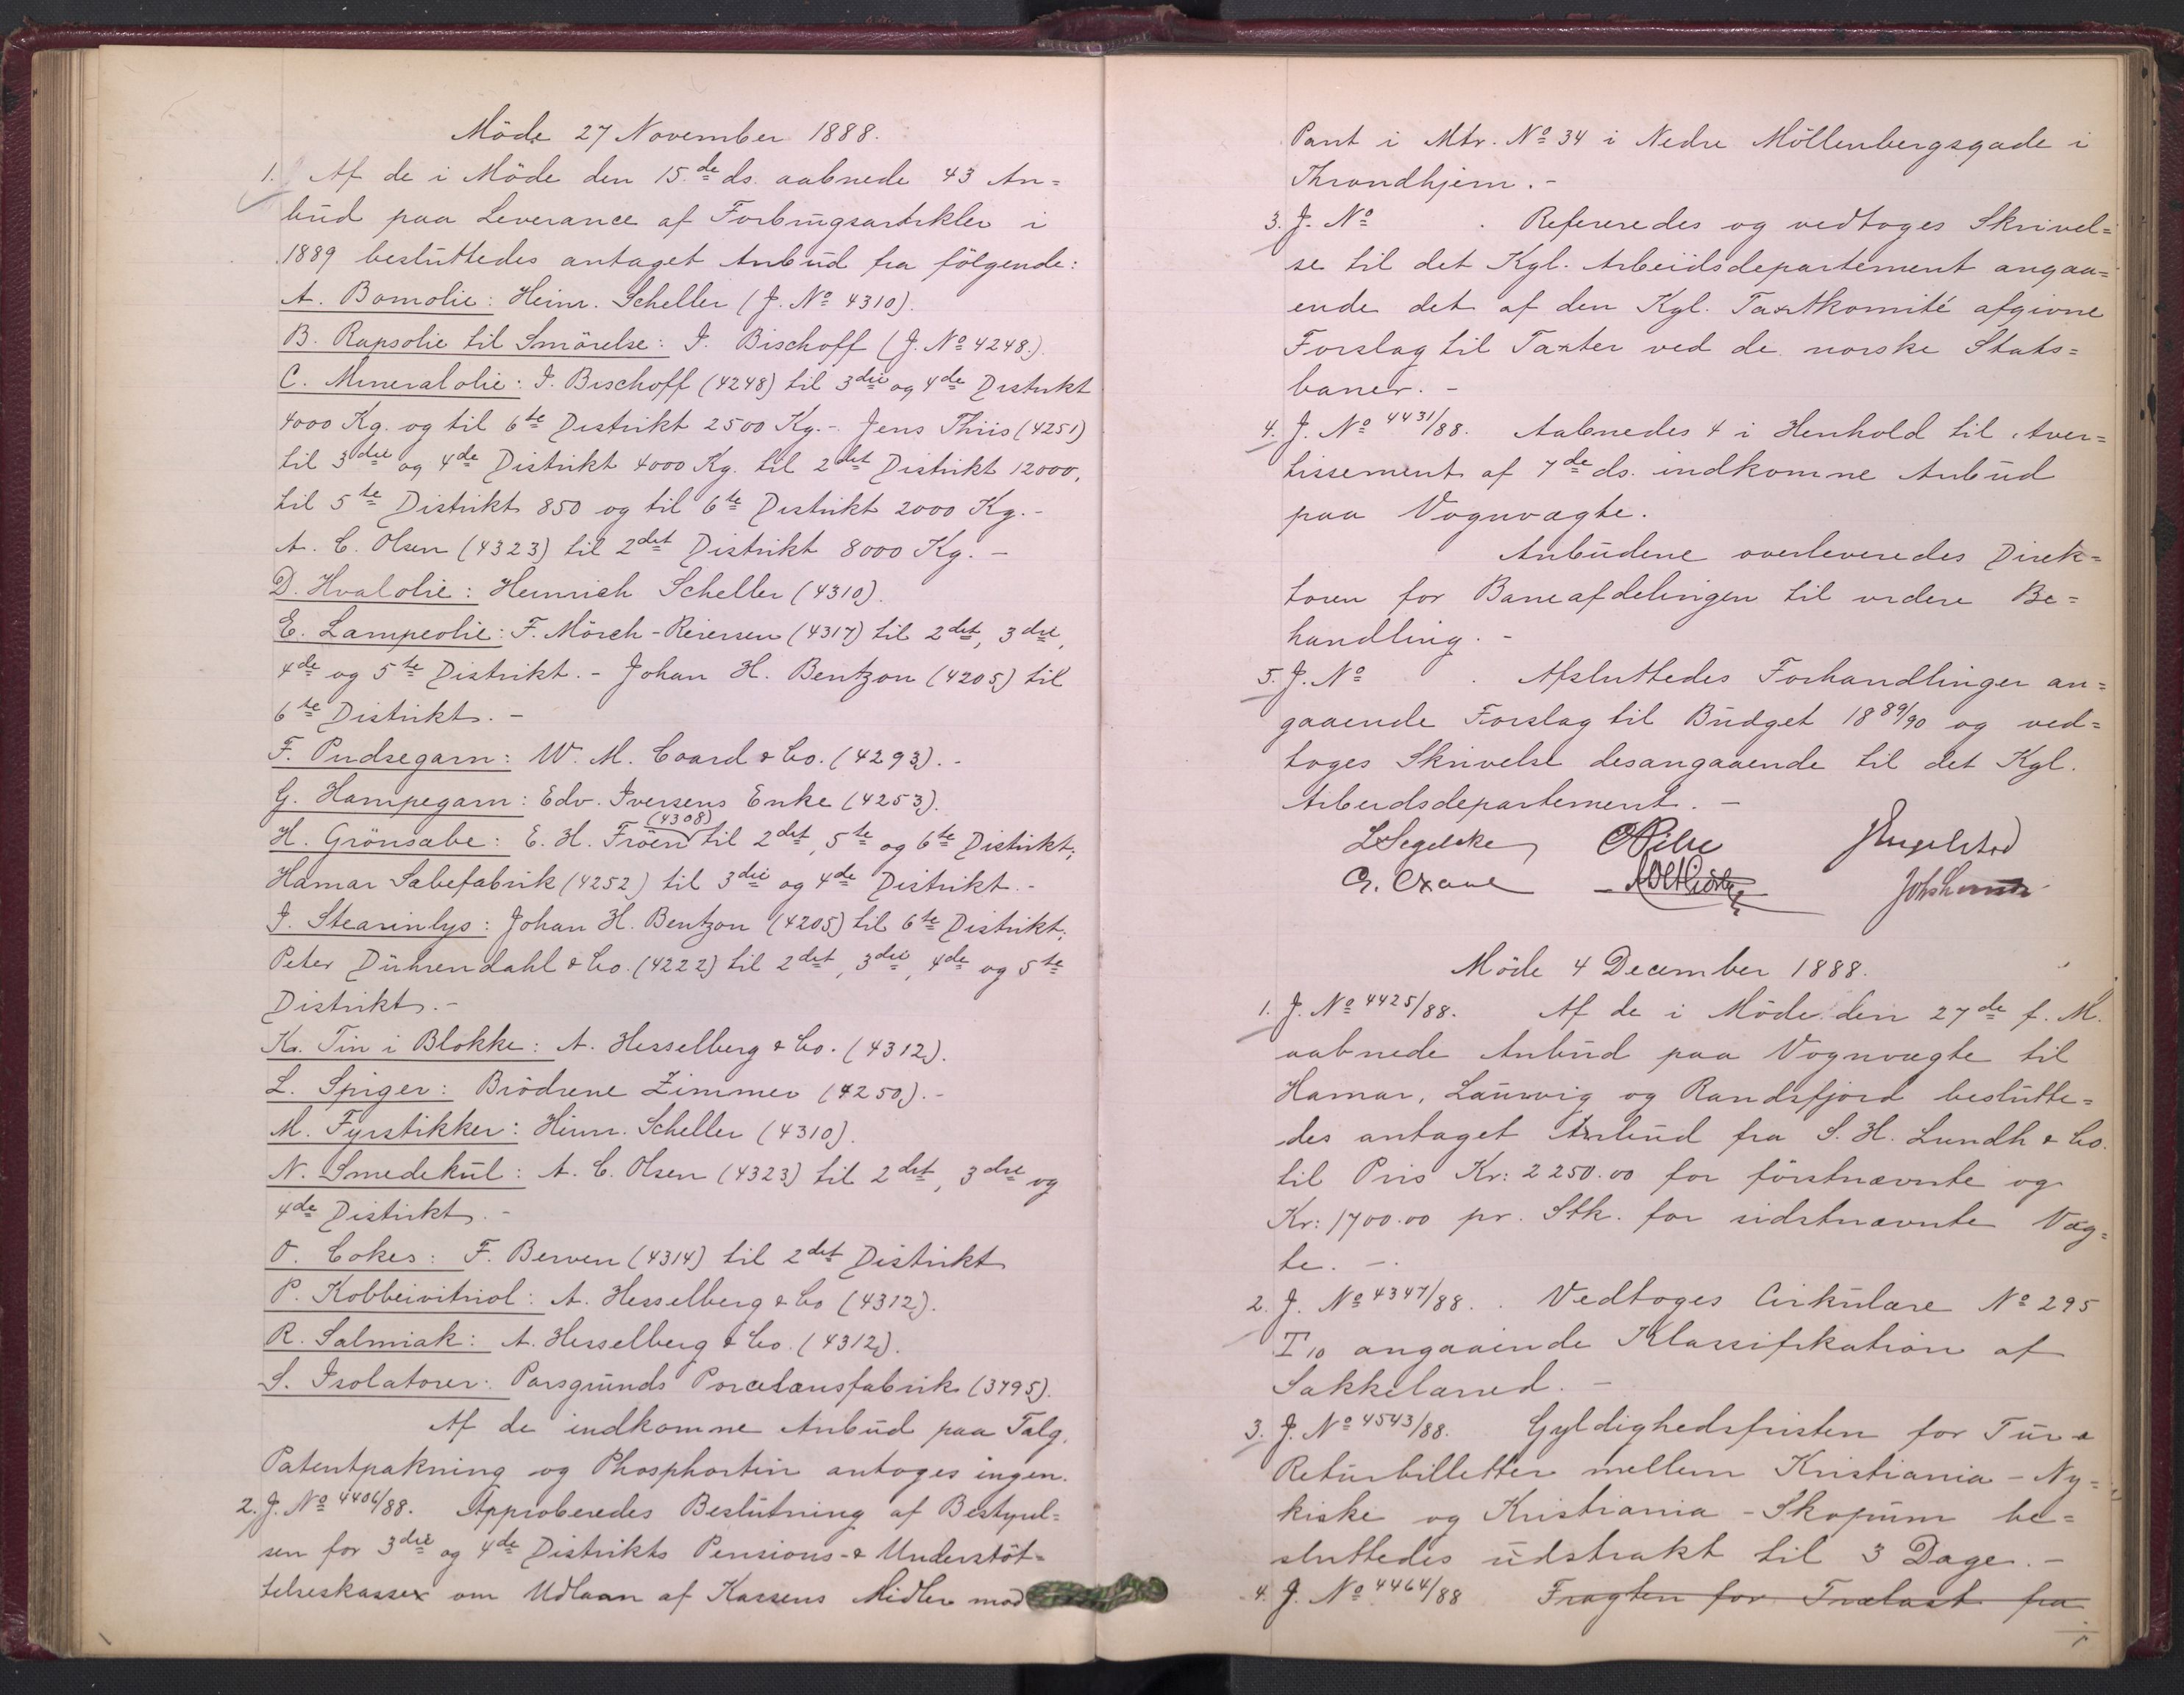 Möde 27 November 1888.
1. Af de i Möde den 15de ds. aabnede 43 An=
bud paa Leverance af Forbrugsartikler i
1889 besluttedes antaget Anbud fra fölgende:
A. Bomolie: Heinr. Scheller (J. No 4310).
B. Rapsolie til Smörelse: I. Bischoff (J. No 4248.)
C. Mineralolie: I. Bischoff (4248) til 3die og 4de Distrikt
4000 Kg. og til 6te Distrikt 2500 Kg. - Jens Thiis (4251)
til 3die og 4de Distrikt 4000 Kg. til 2det Distrikt 12000,
til 5te Distrikt 850 og til 6te Distrikt 2000 Kg. -
A. C. Olsen (4323) til 2det Distrikt 8000 Kg. -
D. Hvalolie: Heinrich Scheller (4310).
E. Lampeolie: F. Mörch-Reiersen (4317) til 2det, 3die,
4de og 5te Distrikt. - Johan H. Bentzon (4205) til
6te Distrikt. -
F. Pudsegarn: W. M. Coard & Co. (4293). -
G. Hampegarn: Edv. Iversens Enke (4253).
H. Grönsæbe: E. H. Fröen (4308) til 2det, 5te og 6te Distrikt;
Hamar Sæbefabrik (4252) til 3die og 4de Distrikt. -
I. Stearinlys: Johan H. Bentzon (4205) til 6te Distrikt;
Peter Dührendahl & Co. (4222) til 2det, 3die, 4de og 5te
Distrikt. -
K. Tin i Blokke: A. Hesselberg & Co. (4312).
L. Spiger: Brödrene Zimmer (4250). -
M. Fyrstikker: Heinr. Scheller (4310).
N. Smedekul: A. C. Olsen (4323) til 2det, 3die og
4de Distrikt. -
O. Cokes: F. Berven (4314) til 2det Distrikt
P. Kobbervitriol: A. Hesselberg & Co (4312).
R. Salmiak: A. Hesselberg & Co. (4312).
S. Isolatorer: Porsgrunds Porcelænsfabrik (3795).
Af de indkomne Anbud paa Talg,
Patentpakning og Phosphortin antoges ingen.
2. J. No 4406/88. Approberedes Beslutning af Bestyrel=
sen for 3die og 4de Distrikts Pensions- & Understöt=
telseskasser om Udlaan af Kassens Midler mod
Pant i Mtr. No 34 i Nedre Möllenbergsgade i
Throndhjem. -
3. J. No . Refereredes og vedtoges Skrivel=
se til det Kgl. Arbeidsdepartement angaa=
ende det af den Kgl. Taxtkomité afgivne
Forslag til Taxter ved de norske Stats=
baner. -
4. J. No 4431/88. Aabnedes 4 i Henhold til Aver=
tissement af 7de ds. indkomne Anbud
paa Vognvægte.
Anbudene overleveredes Direk=
tören for Baneafdelingen til videre Be=
handling. -
5. J. No . Afsluttedes Forhandlinger an=
gaaende Forslag til Budget 1889/90 og ved=
toges Skrivelse desangaaende til det Kgl.
Arbeidsdepartement. -
L Segelcke C Pihl JEngelstad
Möde 4 December 1888.
1. J. No 4425/88. Af de i Möde den 27de f. M.
aabnede Anbud paa Vognvægte til
Hamar, Laurvig og Randsfjord beslutte=
des antaget Anbud fra S. H. Lundh & Co.
til Pris Kr: 2250.00 for förstnævnte og
Kr: 1700.00 pr. Stk. for sidstnævnte Væg=
te. -
2. J. No 4347/88. . Vedtoges Cirkulære No 295
T 10 angaaende Klassifikation af
Sækkelærred. -
3. J. No 4543/88. Gyldighedsfristen for Tur &
Returbilletter mellem Kristiania - Ny=
kirke og Kristiania - Skopum be=
sluttedes udstrakt til 3 Dage. -
4. J. No 4464/88 Fragten for Trælast fra